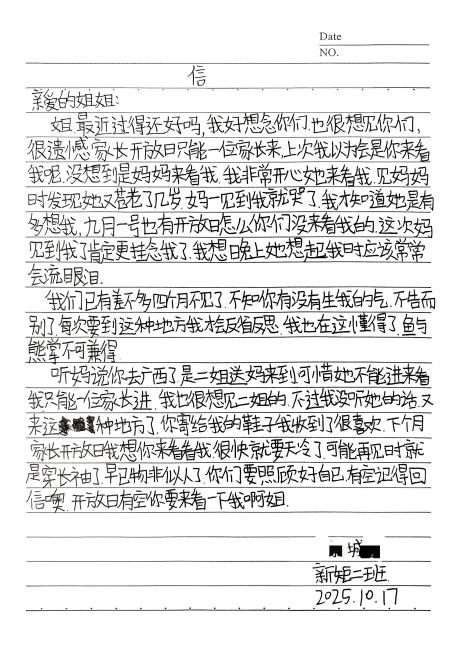 Date
NO.
信
亲爱的姐姐:
姐.最近过得还好吗,我好想念你们.也很想见你们,
很遗憾家长开放日只能一位家长来,上次我以为会是你来看
我呢.没想到是妈妈来看我.我非常开心她来看我.见妈妈
时发现她又苍老了几岁.妈一见到我就哭了.我才知道她是有
多想我,九月一号也有开放日怎么你们没来看我的.这次妈
见到我了肯定更挂念我了.我想晚上她想起我时应该常常
会流眼泪.
我们已有差不多四个月不见了.不知你有没有生我的气.不告而
别了.每次要到这种地方我才会反省反思.我也在这懂得了.鱼与
熊掌不可兼得.
听妈说你去广西了.是二姐送妈来到可惜她不能进来看
我只能一位家长进.我也很想见二姐的.不过我没听她的话.又
来这种地方了.你寄给我的鞋子我收到了很喜欢.下个月
家长开放日我想你来看看我.很快就要天冷了.可能再见时就
是穿长袖了.早已物非似人了.你们要照顾好自己.有空记得回
信噢.开放日有空你要来看一下我啊姐.
城
新矩二班.
2025.10.17